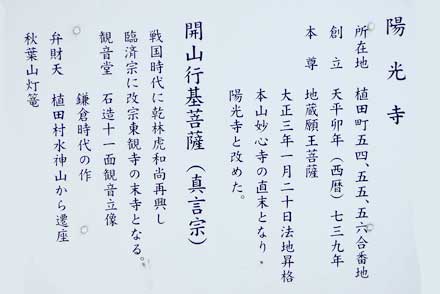 陽光寺
所在地 植田町五四、五五、五六合番地
創立 天平卯年(西暦)七三九年
本尊 地蔵願王菩薩
大正三年一月二十日法地昇格
本山妙心寺の直末となり、
陽光寺と改めた。
開山行基菩薩(真言宗)
戦国時代に乾林虎和尚再興し
臨済宗に改宗東観寺の末寺となる。
観音堂 石造十一面観音立像
鎌倉時代の作
弁財天 植田村水神山から遷座
秋葉山灯篭